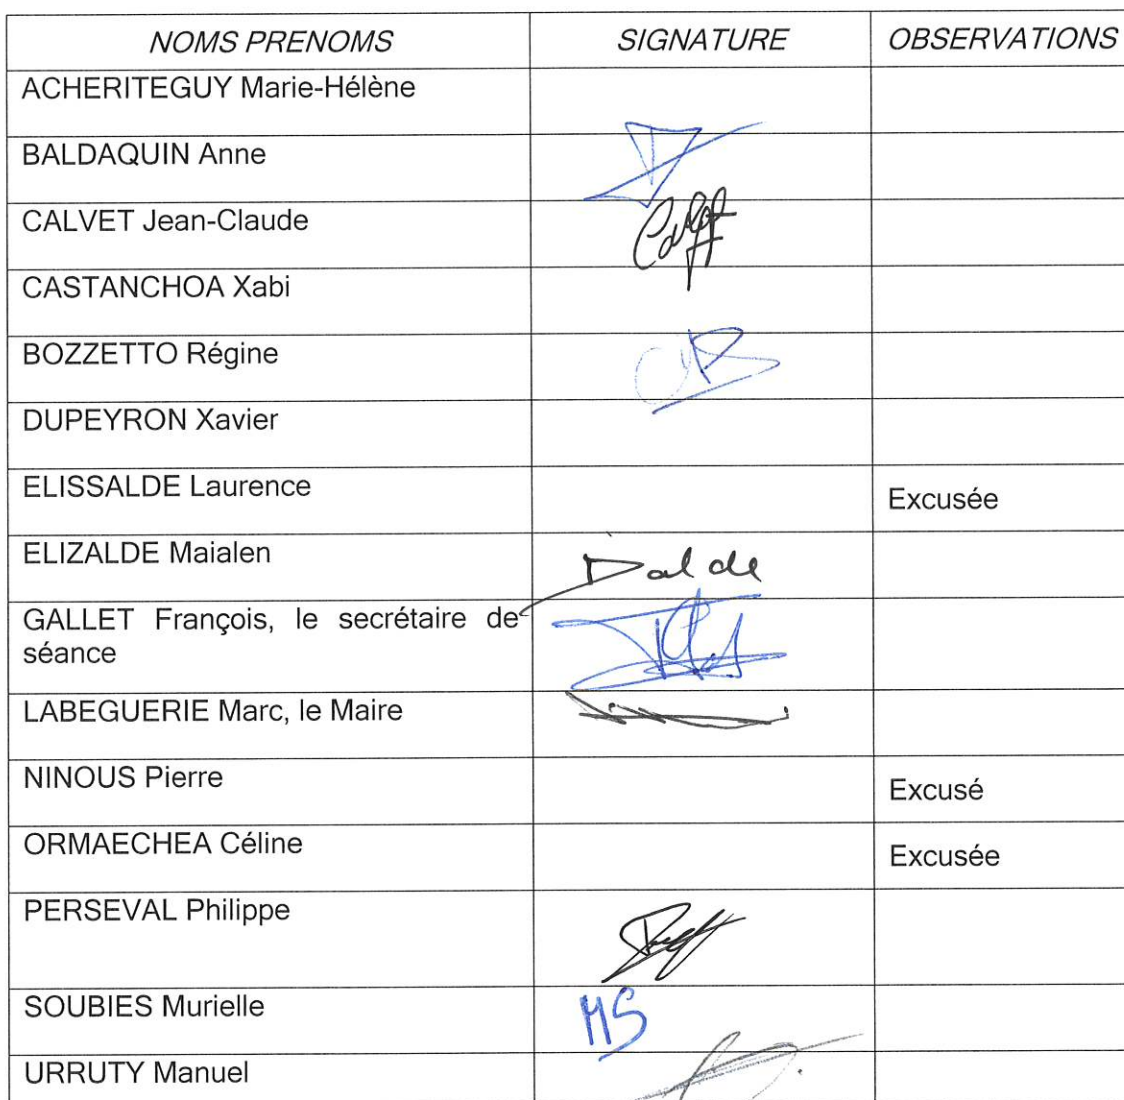 NOMS PRENOMS SIGNATURE OBSERVATIONS
ACHERITEGUY Marie-Hélène
BALDAQUIN Anne
CALVET Jean-Claude
CASTANCHOA Xabi
BOZZETTO Régine
DUPEYRON Xavier
ELISSALDE Laurence Excusée
ELIZALDE Maialen
GALLET François, le secrétaire de
séance
LABEGUERIE Marc, le Maire
NINOUS Pierre Excusé
ORMAECHEA Céline Excusée
PERSEVAL Philippe
SOUBIES Murielle MS
URRUTY Manuel